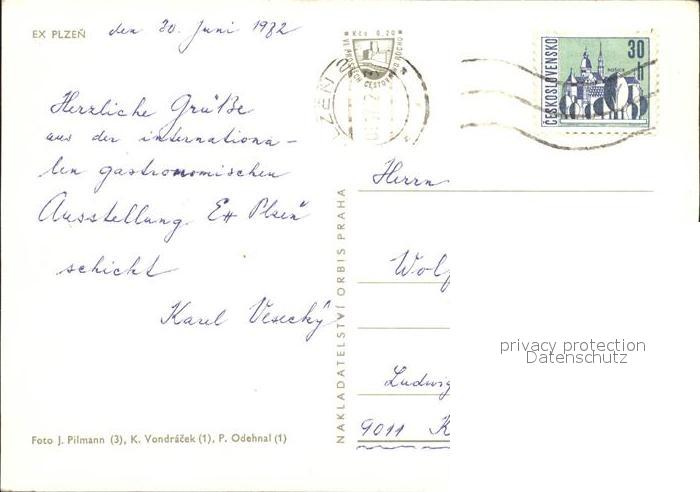 EX PLZEŇ
den 30. Juni 1972
Herzliche Grüße
aus der internationa-
len gastronomischen
Ausstellung Ex Plzeň
schickt
Karel Vesecký
Foto J. Pilmann (3), K. Vondráček (1), P. Odehnal (1)
NAKLADATELSTVÍ ORBIS PRAHA
Kčs 0,20
ČESKOSLOVENSKO
30
h
Herrn
Wolf
Ludwig
9011 K
privacy protection
Datenschutz